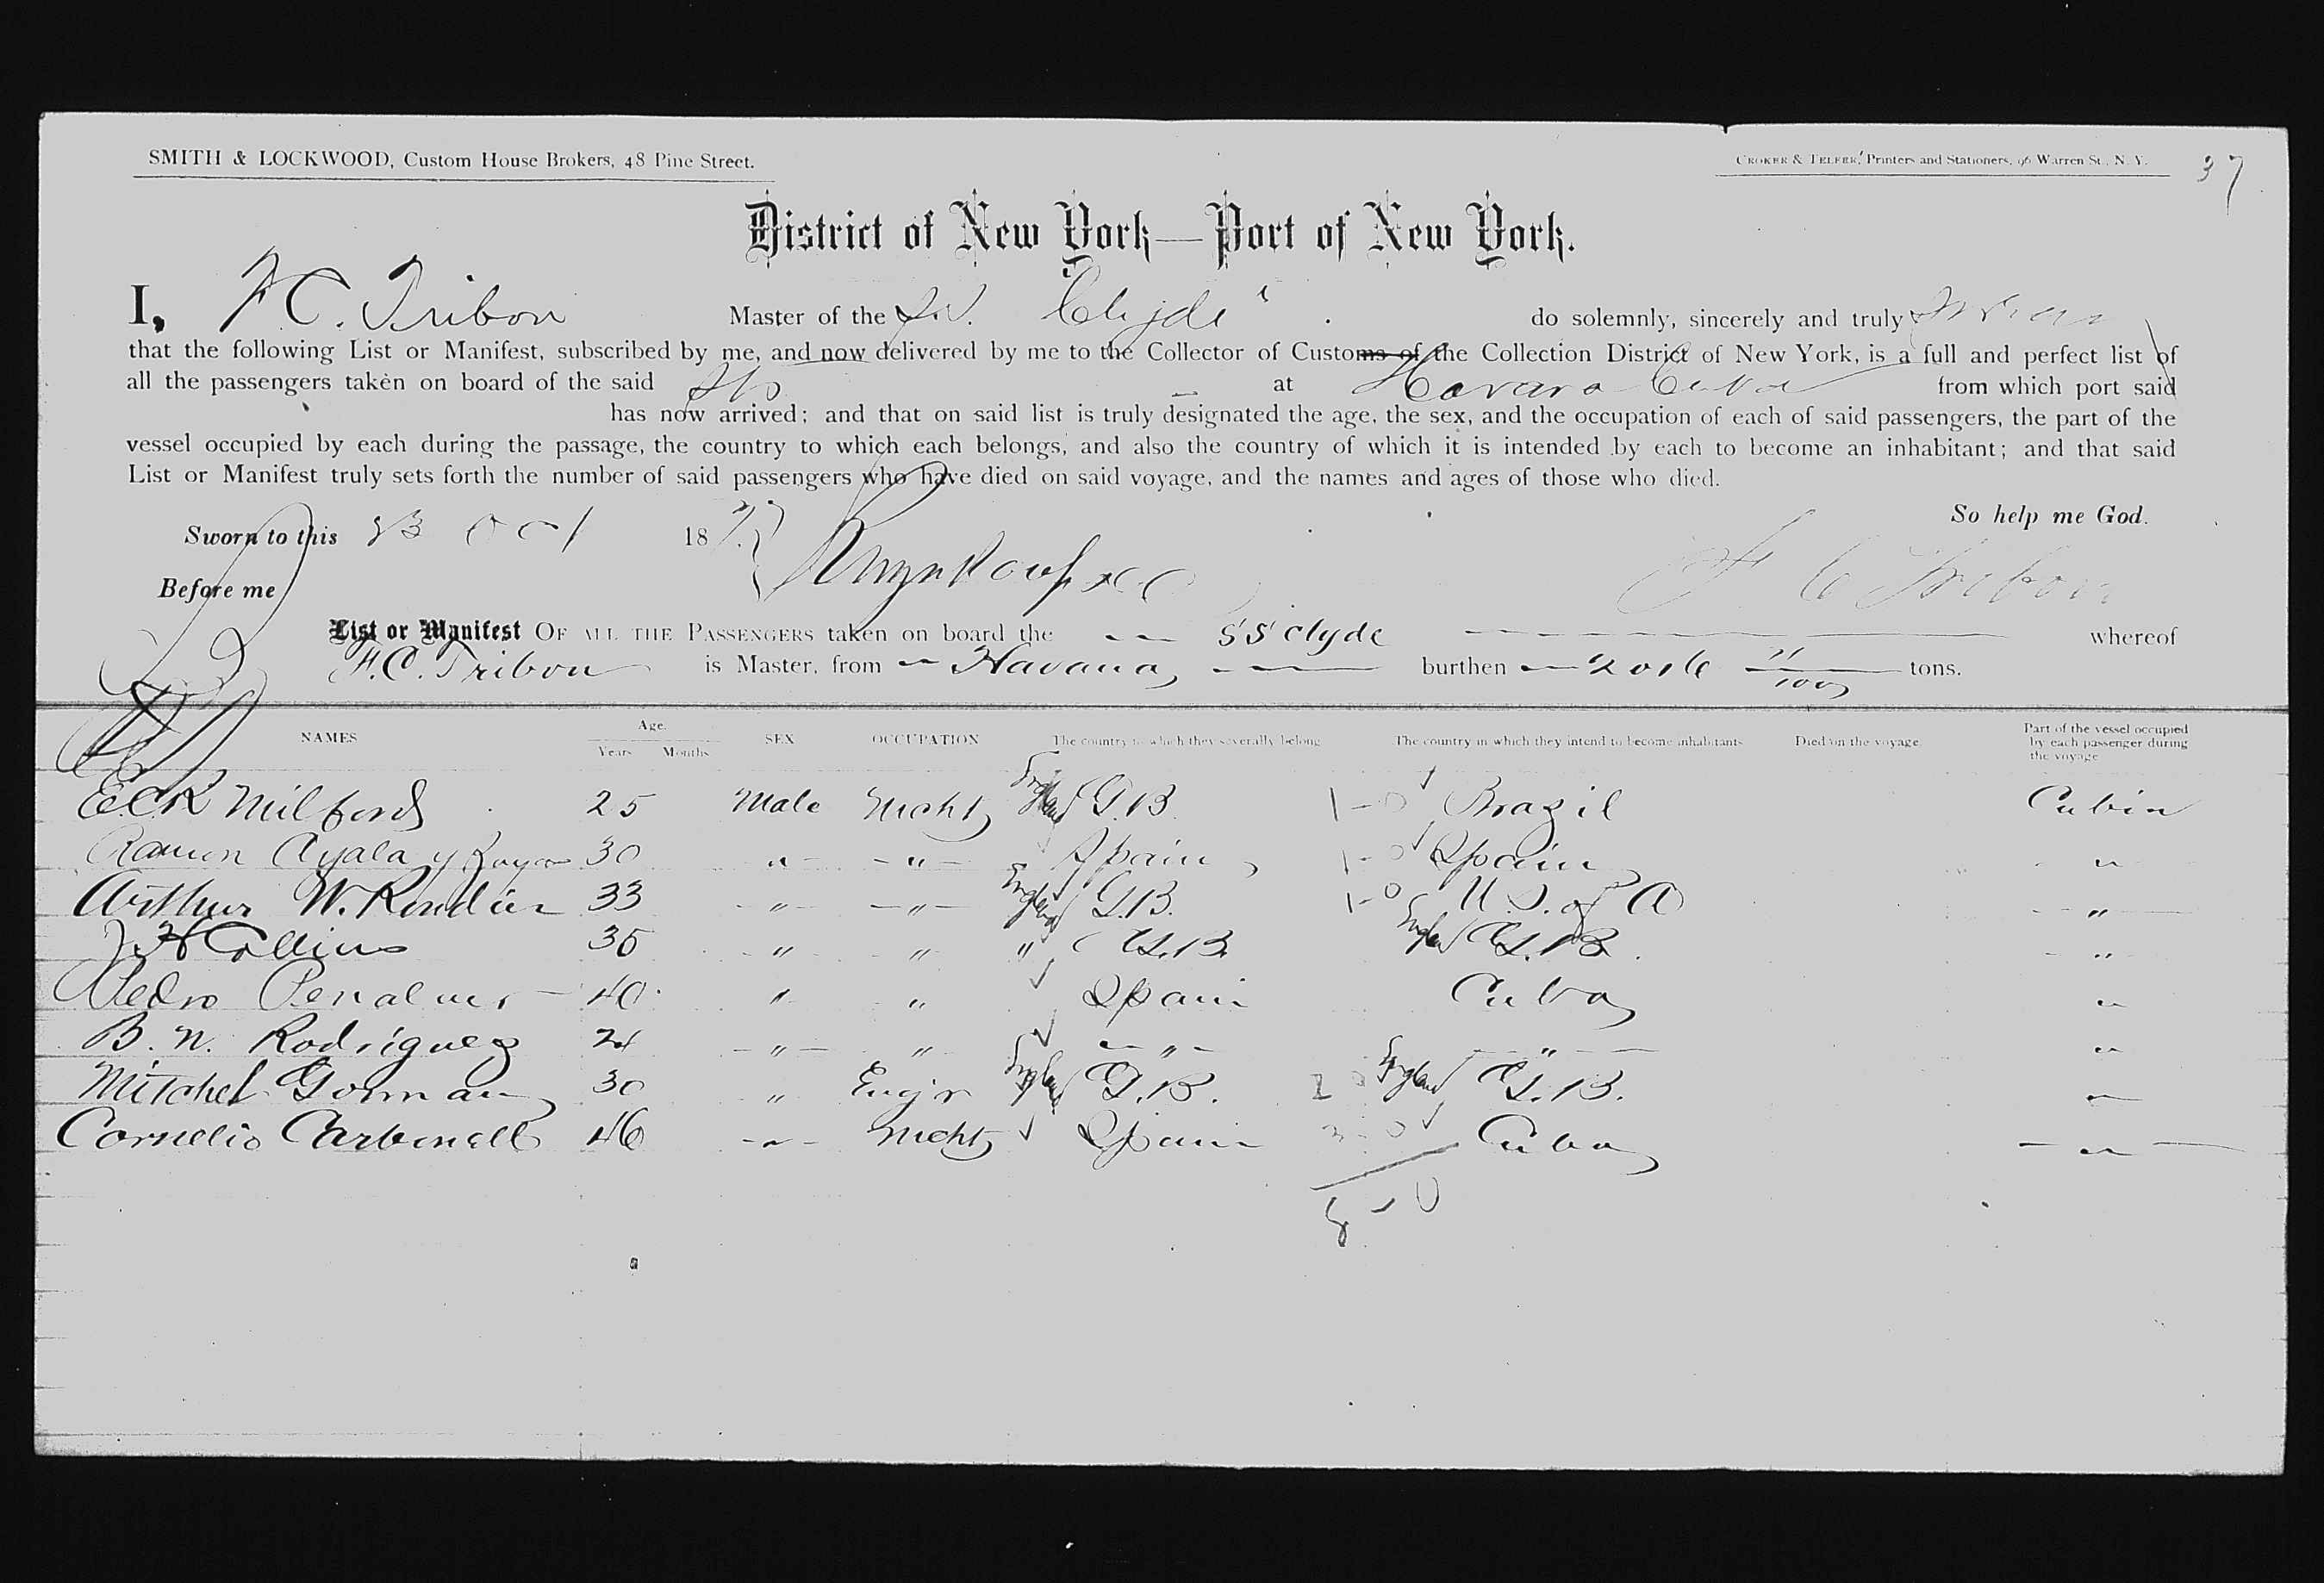 SMITH & LOCKWOOD, Custom House Brokers, 48 Pine Street.
CROKER & TELFER, Printers and Stationers, 96 Warren St., N. Y.
37
District of New York—Port of New York.
I, F C. Tribou Master of the S.S. Clyde do solemnly, sincerely and truly swear
that the following List or Manifest, subscribed by me, and now delivered by me to the Collector of Customs of the Collection District of New York, is a full and perfect list of
all the passengers taken on board of the said at Havana Cuba from which port said
has now arrived; and that on said list is truly designated the age, the sex, and the occupation of each of said passengers, the part of the
vessel occupied by each during the passage, the country to which each belongs, and also the country of which it is intended by each to become an inhabitant; and that said
List or Manifest truly sets forth the number of said passengers who have died on said voyage, and the names and ages of those who died.
So help me God.
Sworn to this Oct 18
Before me
F C Tribou
List or Manifest OF ALL THE PASSENGERS taken on board the SS Clyde whereof
F. C. Tribou is Master, from Havana, burthen 2016 11/100 tons.
NAMES Age. Years Months SEX OCCUPATION The country to which they severally belong The country in which they intend to become inhabitants Died on the voyage Part of the vessel occupied by each passenger during the voyage
E C K Milford 25 Male Mcht England G.B. 1-0 Brazil Cabin
Ramon Ayala y 30 " " Spain 1-0 Spain "
Arthur W. 33 " " England G.B. 1-0 U.S. of A "
J H Collins 35 " " " G.B. England G.B. "
Pedro 40 " " Spain Cuba "
B. N. Rodriguez 24 " " " " "
Mitchel Gorman 30 " Engr England G.B. 2 England G.B. "
Cornelio Carbonell 46 " Mcht Spain Cuba "
8-0